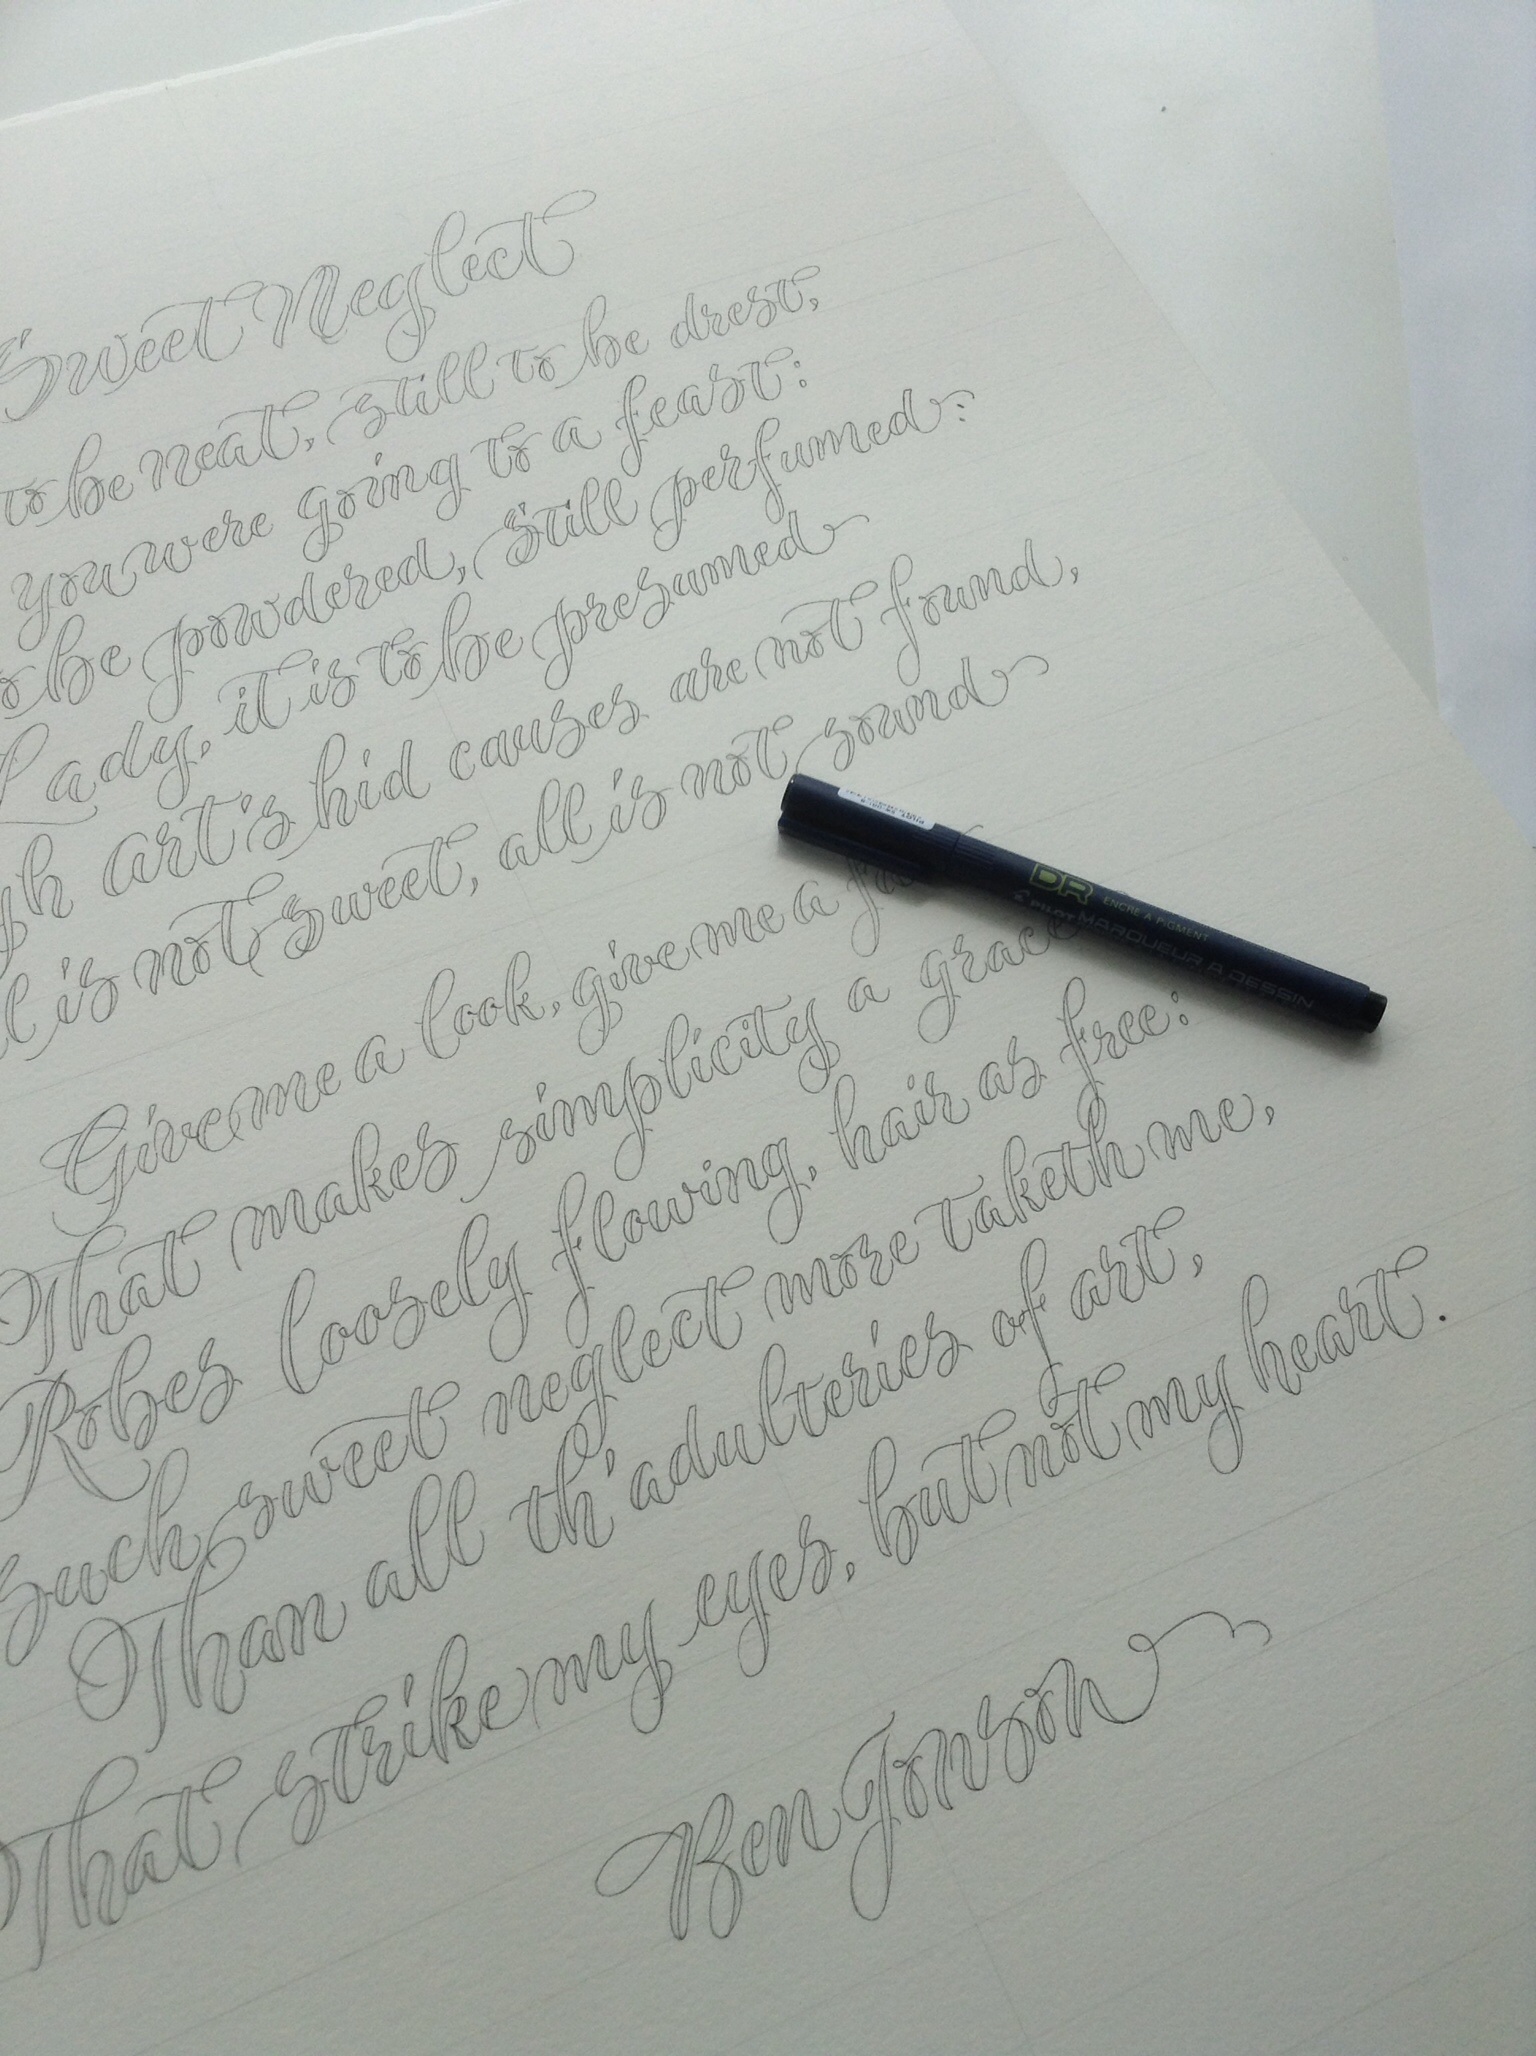 Sweet Neglect
to be neat, still to be drest,
you were going to a feast:
be powdered, still perfumed:
Lady, it is to be presumed
art's hid causes are not found,
is not sweet, all is not sound
Give me a look, give me a
That makes simplicity a grace
Robes loosely flowing, hair as free:
Such sweet neglect more taketh me,
Than all th'adulteries of art,
That strike my eyes, but not my heart.
Ben Jonson
DR ENCRE A PIGMENT
PILOT MARQUEUR A DESSIN